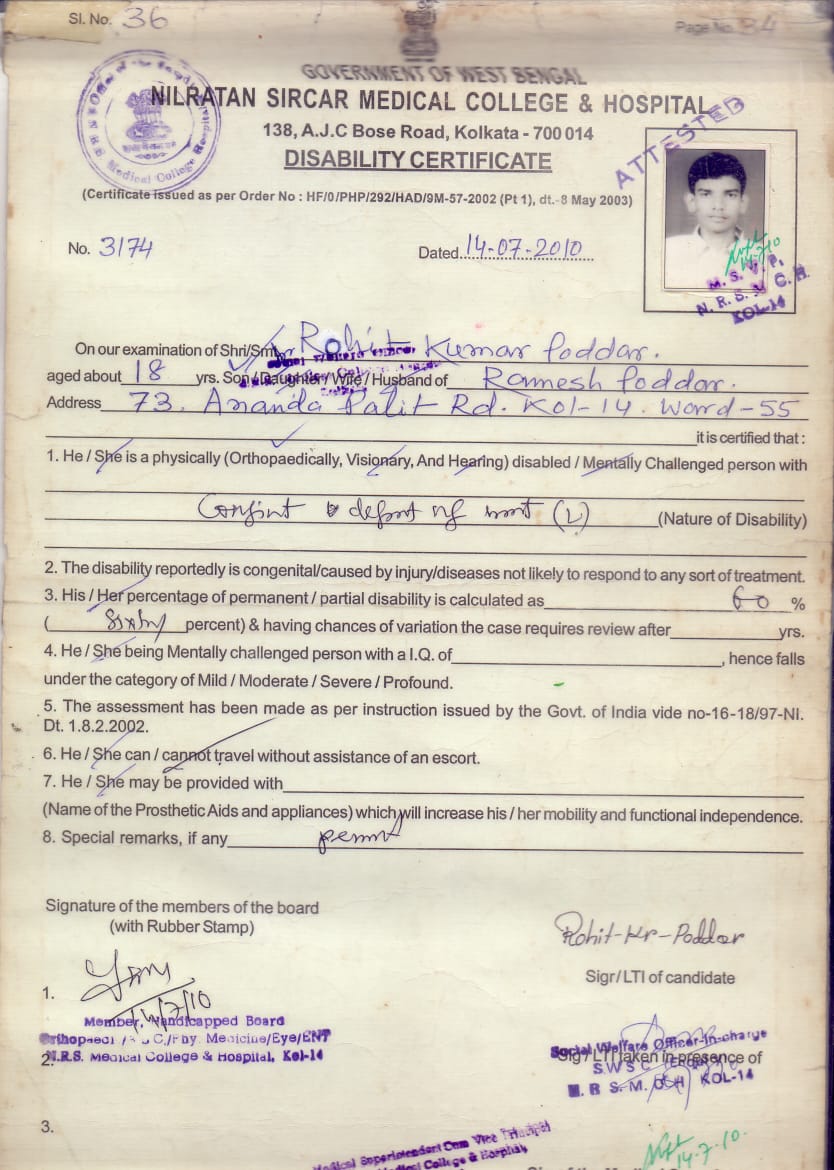 Sl. No. 36
Page No. 34
GOVERNMENT OF WEST BENGAL
NILRATAN SIRCAR MEDICAL COLLEGE & HOSPITAL
138, A.J.C Bose Road, Kolkata - 700 014
DISABILITY CERTIFICATE
ATTESTED
(Certificate issued as per Order No : HF/0/PHP/292/HAD/9M-57-2002 (Pt 1), dt.- 8 May 2003)
No. 3174 Dated. 14-07-2010
M. S. V. P.
N. R. S. M. C. H.
KOL-14
On our examination of Shri/Smt Rohit Kumar Poddar.
aged about 18 yrs. Son / Daughter / Wife / Husband of Ramesh Poddar.
Address 73, Ananda Palit Rd. Kol-14. Word-55
it is certified that :
1. He / She is a physically (Orthopaedically, Visionary, And Hearing) disabled / Mentally Challenged person with
(L) (Nature of Disability)
2. The disability reportedly is congenital/caused by injury/diseases not likely to respond to any sort of treatment.
3. His / Her percentage of permanent / partial disability is calculated as 60 %
( Sixty percent) & having chances of variation the case requires review after yrs.
4. He / She being Mentally challenged person with a I.Q. of , hence falls
under the category of Mild / Moderate / Severe / Profound.
5. The assessment has been made as per instruction issued by the Govt. of India vide no-16-18/97-NI.
Dt. 1.8.2.2002.
6. He / She can / cannot travel without assistance of an escort.
7. He / She may be provided with
(Name of the Prosthetic Aids and appliances) which will increase his / her mobility and functional independence.
8. Special remarks, if any
Signature of the members of the board
(with Rubber Stamp)
Rohit-Kr-Poddar
Sigr/LTI of candidate
1.
14/7/10
Member, Handicapped Board
Orthopaedi / Phy. Medicine/Eye/ENT
2. N.R.S. Medical College & Hospital, Kol-14
Social Welfare Officer-in-charge
Sig / LTI taken in presence of
N. R. S. M. C. H KOL-14
3.
Medical Superintendent Cum Vice Principal
Medical College & Hospital,
14-7-10.